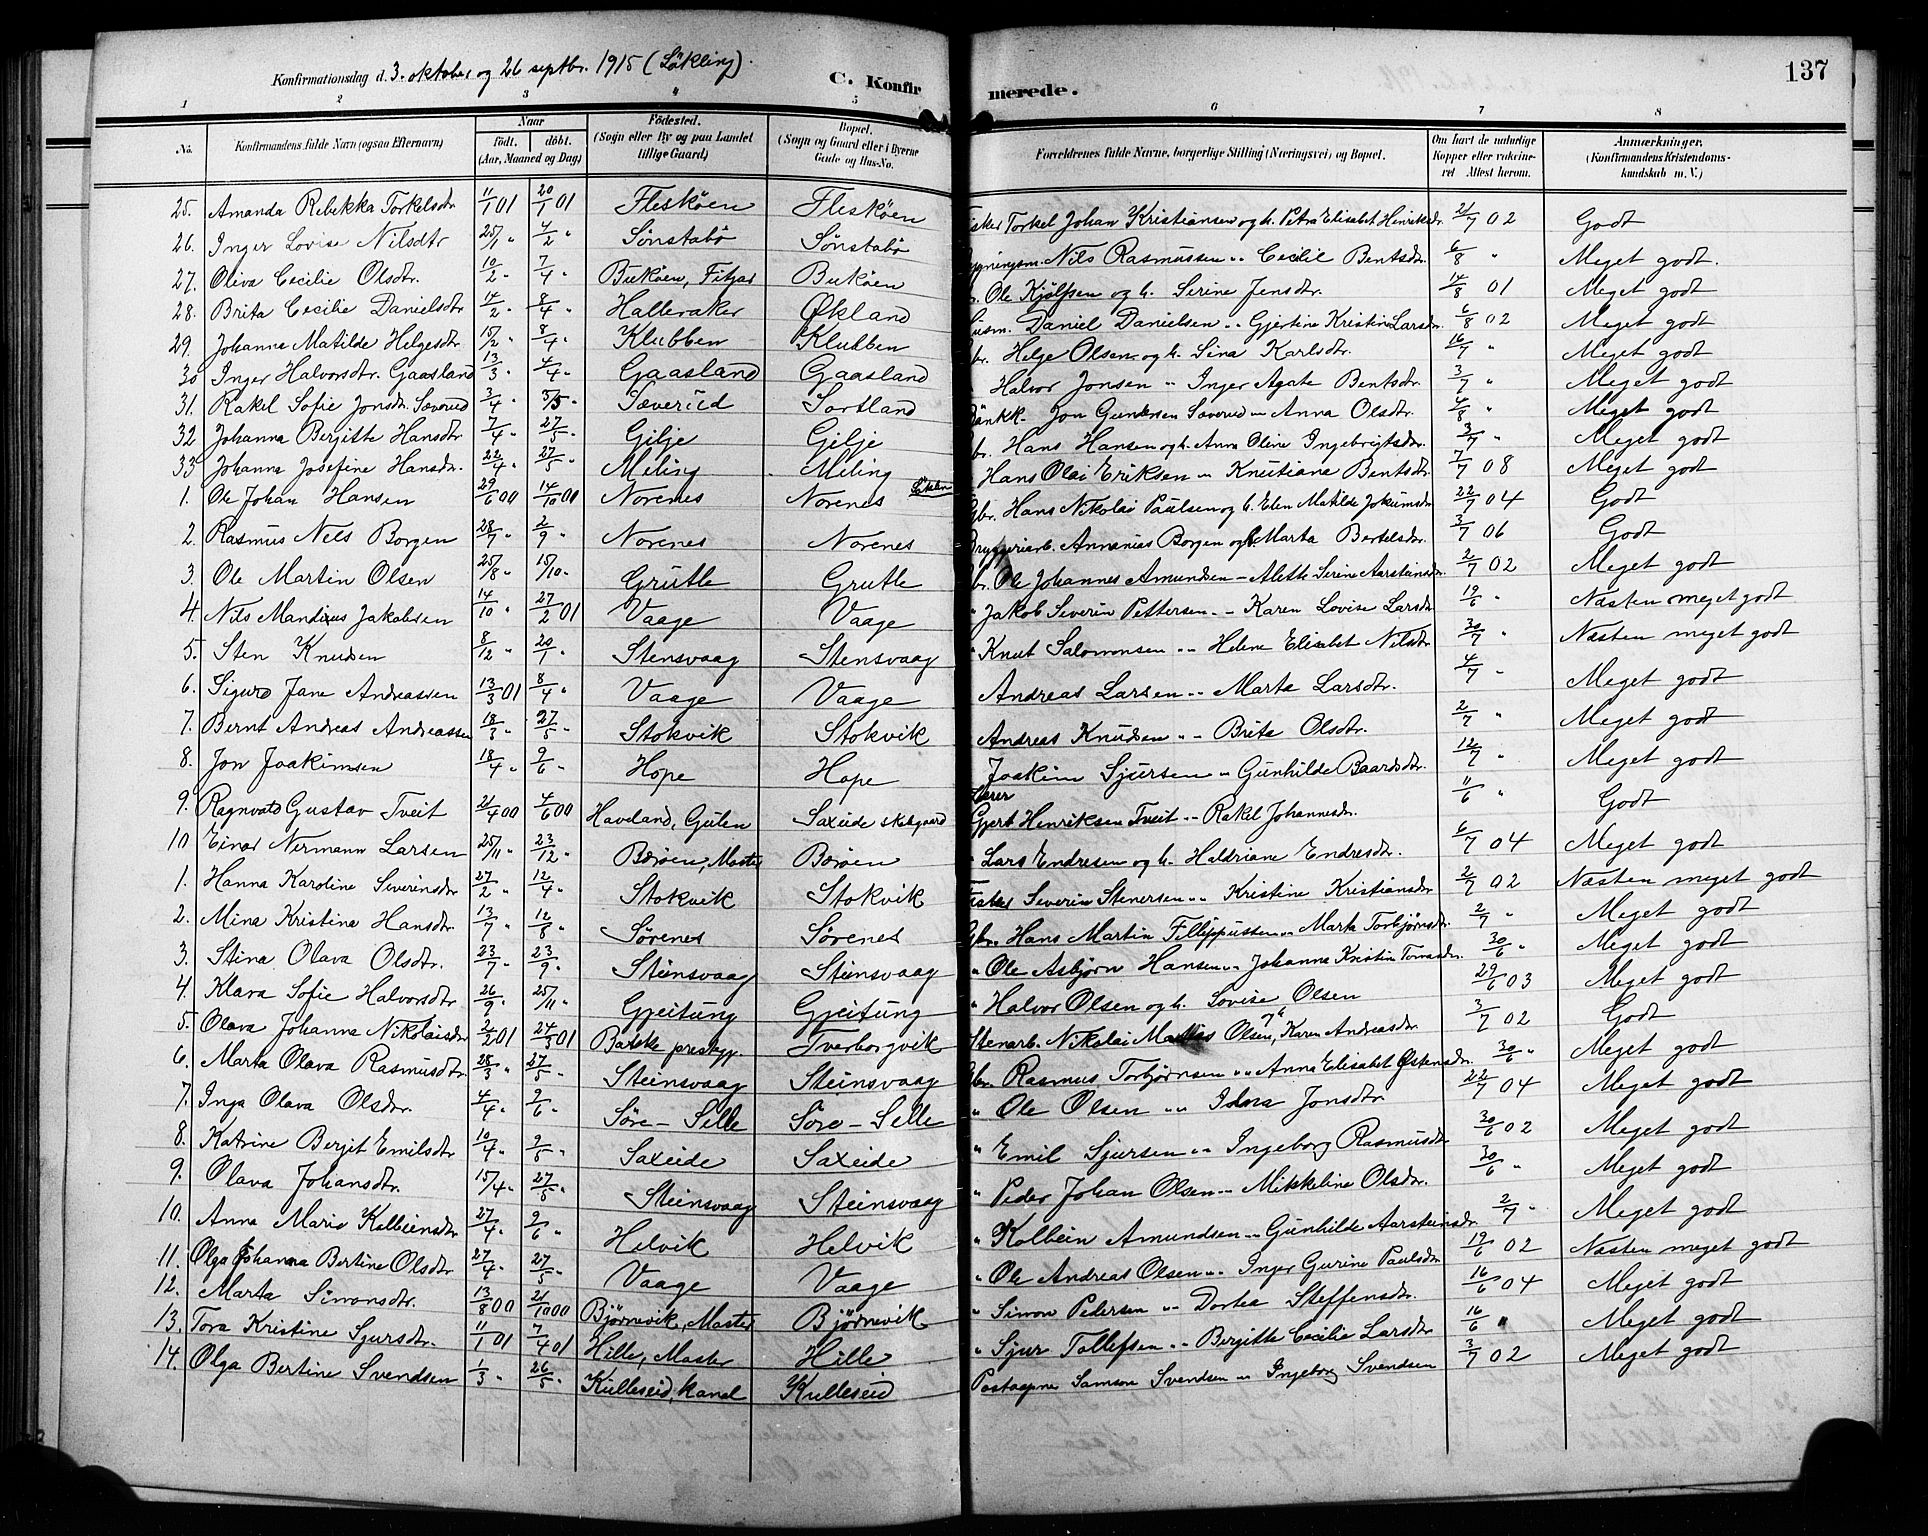 Konfirmationsdag d. 3. oktober og 26 septbr. 1915 (Løkling).
C. Konfirmerede.
137
1 2 3 4 5 6 7 8
No. Konfirmandens fulde Navn (ogsaa Efternavn) Naar født. døbt. (Aar, Maaned og Dag) Fødested. (Sogn eller By og paa Landet tillige Gaard) Bopæl. (Sogn og Gaard eller i Byerne Gade og Hus-No. Forældrenes fulde Navne, borgerlige Stilling (Næringsvei) og Bopæl. Om havt de naturlige Kopper eller vaccineret Attest herom. Anmærkninger. (Konfirmandens Kristendomskundskab m. V.)
25. Amanda Rebekka Torkelsdtr. 11/1 01 20/1 01 Fleskøen Fleskøen Fisker Torkel Johan Kristiansen og h. Petra Elisabet Henriksdr. 21/7 02 Godt
26. Inger Lovise Nilsdtr 25/1 " 4/2 " Sønstabø Sønstabø Bygningsm. Nils Rasmussen " Cecilie Bentsdtr. 6/8 " Meget godt.
27. Oliva Cecilie Olsdtr. 10/2 " 7/4 " Bukøen, Fitjar Bukøen Ole Kjølfsen og h. Serine Jensdtr. 14/8 01 Meget godt
28. Brita Cecilie Danielsdtr 14/2 " 8/4 " Halleraker Økland Husm. Daniel Danielsen " Gjertine Kristine Larsdr. 6/8 02 Meget godt
29. Johanna Matilde Helgesdtr. 15/2 " 8/4 " Klubben Klubben Gbr. Helge Olsen og h. Sina Karlsdtr. 16/7 " Meget godt
30 Inger Halvorsdtr. Gaasland 13/3 " 4/4 " Gaasland Gaasland Halvor Jonsen " Inger Agate Bentsdtr. 3/7 " Meget godt
31. Rakel Sofie Jonsdtr. Sæverud 3/4 " 3/5 " Sæverud Sortland Jon Gundersen Sæverud " Anna Olsdtr. 4/8 " Meget godt
32 Johanna Bergitte Hansdtr 7/4 " 27/5 " Gilje Gilje Gbr. Hans Hansen og h. Anna Oline Ingebrigtsdr. 3/7 " Meget godt
33 Johanna Josefine Hansdr. 22/4 " 27/5 " Meling Meling Hans Olai Eriksen " Knutiane Bentsdtr. 7/7 08 Meget godt
1. Ole Johan Hansen 29/6 00 14/10 00 Norenes Norenes Gbr. Hans Nikolai Paulsen og h. Elen Matilde Jokumsdr 22/7 04 Godt
2. Rasmus Nels Borgen 28/7 " 2/9 " Norenes Norenes Bryggeriarb. Annanias Borgen og h. Marta Bertelsdr. 3/7 06 Godt
3. Ole Martin Olsen 25/8 " 15/10 " Grutle Grutle Gbr. Ole Johannes Amundsen " Alette Serine Aarsteinsdr. 2/7 02 Meget godt
4. Nils Mandius Jakobsen 14/10 " 27/2 01 Vaage Vaage " Jakob Severin Pettersen " Karen Lovise Larsdr 19/6 " Næsten meget godt
5. Sten Knudsen 8/12 " 20/1 " Stensvaag Stensvaag " Knut Salomonsen " Helene Elisabet Nilsdr 30/7 " Næsten meget godt
6. Sigurd Jane Andreassen 13/3 01 8/4 " Vaage Vaage Andreas Larsen " Marta Larsdtr. 4/7 " Meget godt
7. Bernt Andreas Andreassen 18/3 " 27/5 " Stokvik Stokvik Andreas Knudsen " Brita Olsdtr. 2/7 " Meget godt
8. Jon Joakimsen 18/4 " 9/6 " Hope Hope Joakim Sjursen " Gunhilde Baardsdtr. 12/7 " Meget godt
9. Ragnvald Gustav Tveit 21/4 00 4/6 00 Haveland, Gulen Saxeide skolgaard Lærer Gjert Henriksen Tveit " Rakel Johannesdr. 11/6 " Godt
10 Einar Nermann Larsen 25/11 " 23/12 " Børøen, Moster Børøen " Lars Endresen og h. Haldriane Endresdtr. 6/7 04 Meget godt
1. Hanna Karoline Severinsdtr 27/2 " 12/4 " Stokvik Stokvik Fisker Severin Stenersen " Kristine Kristiansdr 2/7 02 Næsten meget godt
2. Mina Kristina Hansdtr. 13/7 " 12/8 " Sørenes Sørenes Gbr. Hans Martin Fillippussen " Marta Torbjørnsdr 2/7 " Meget godt
3. Stina Olava Olsdtr. 23/7 " 23/9 " Steinsvaag Steinsvaag " Ole Asbjørn Hansen " Johanna Kristin Tomasdr. 30/6 " Meget godt
4. Klara Sofie Halvorsdtr 26/9 " 25/11 " Gjeitung Gjeitung " Halvor Olsen og h. Lovise Olsen 29/6 03 Meget godt
5. Olava Johanna Nikolaisdtr 2/2 01 24/3 01 prestegj. Tverborgvik Stenarb. Nikolai Mathias Olsen, Karen Andreasdtr 3/7 02 Godt
6. Marta Olava Rasmusdtr 28/3 " 27/5 " Steinsvaag Steinsvaag Gbr. Rasmus Torbjørnsen " Anna Elisabet Østensdr. 30/6 " Meget godt
7. Inga Olava Olsdtr. 4/4 " 9/6 " Søre - Selle Søre - Selle " Ole Olsen " Jonsdtr. 22/7 04 Meget godt
8. Katrine Berjit Emilsdtr 10/4 " Saxeide Saxeide " Emil Sjursen " Ingeborg Rasmusdr 30/6 02 Meget godt
9. Olava Johansdtr. 15/4 " 27/5 " Steinsvaag Steinsvaag " Peder Johan Olsen " Mikkeline Olsdr. 30/6 " Meget godt
10. Anna Marie Kolbeinsdtr 27/4 " 9/6 " Helvik Helvik " Kolbein Amundsen " Gunhilde Aarsteinsdr 2/7 " Meget godt
11. Olga Johanna Bertine Olsdtr 27/4 " 27/5 " Vaage Vaage " Ole Andreas Olsen " Inger Gurine Paulsdr. 19/6 02 Næsten meget godt
12. Marta Simonsdtr. 13/8 00 21/10 00 Bjørnevik, Moster Bjørnevik " Simon Pedersen " Dortea Steffensdtr. 16/6 04 Meget godt
13. Tora Kristine Sjursdtr. 11/1 01 7/4 01 Hille, Moster Hille " Sjur Tollefsen " Bergitte Cecilie Larsdtr 16/6 " Meget godt
14. Olga Bertine Svendsen 1/3 " 26/5 " Kulleseid, kanal Kulleseid Postaapner Samson Svendsen " Ingeborg Svendsen 3/7 02 Meget godt